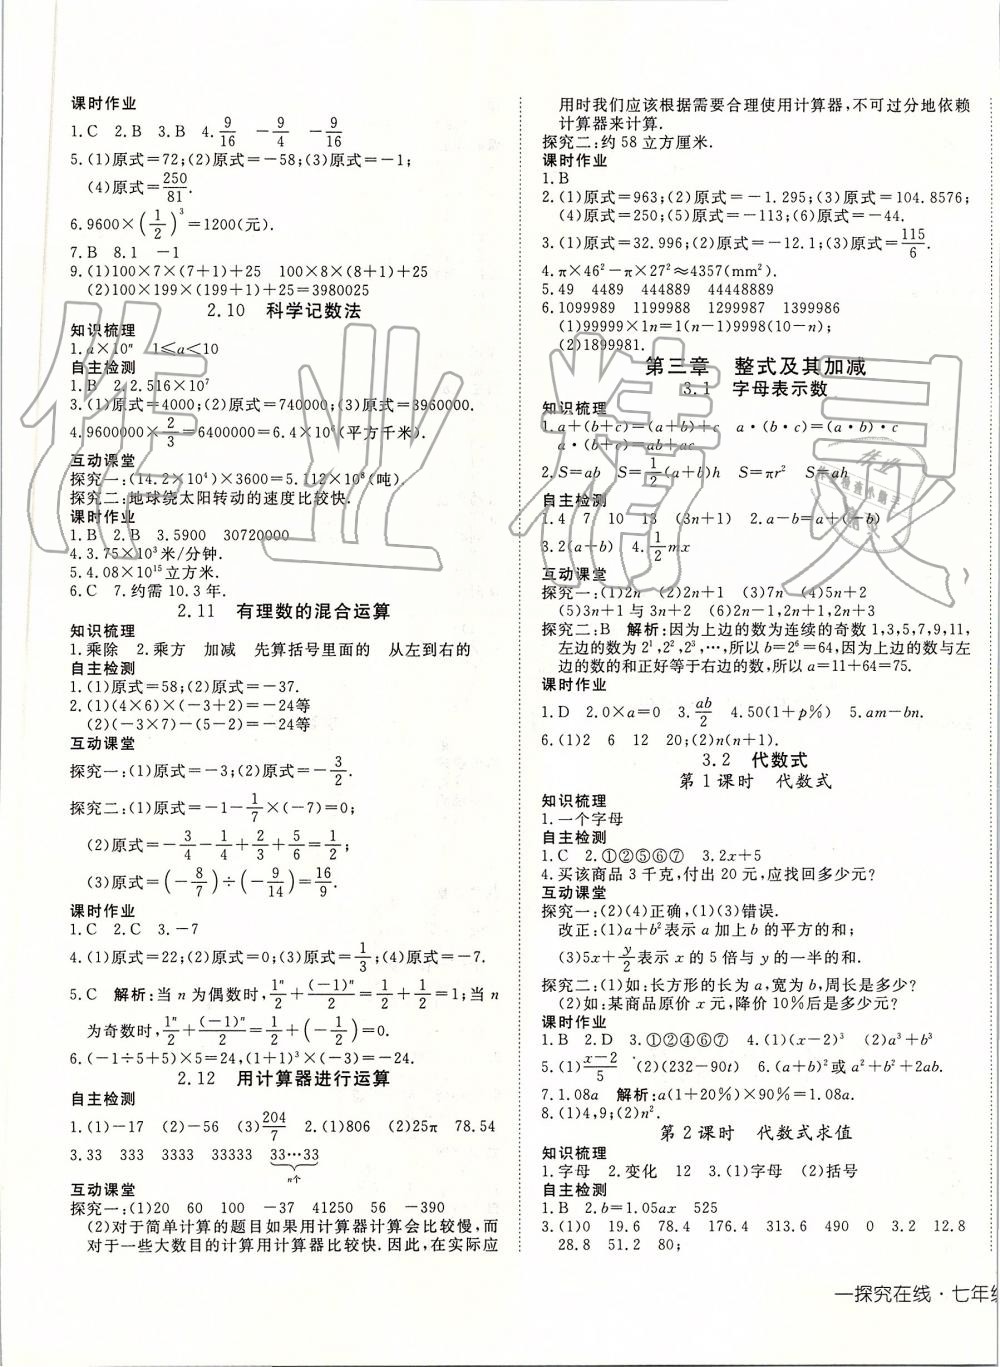 课时作业
1.C 2.B 3.B 4.9/16 －9/4 －9/16
5.(1)原式＝72;(2)原式＝－58;(3)原式＝－1;
(4)原式＝250/81.
6.9600×(1/2)³＝1200(元).
7.B 8.1 －1
9.(1)100×7×(7＋1)＋25 100×8×(8＋1)＋25
(2)100×199×(199＋1)＋25＝3980025
2.10 科学记数法
知识梳理
1.a×10ⁿ 1≤a＜10
自主检测
1.B 2.2.516×10⁷
3.(1)原式＝4000;(2)原式＝740000;(3)原式＝3960000.
4.9600000×2/3＝6400000＝6.4×10⁶(平方千米).
互动课堂
探究一:(14.2×10⁴)×3600＝5.112×10⁸(吨).
探究二:地球绕太阳转动的速度比较快.
课时作业
1.B 2.B 3.5900 30720000
4.3.75×10³米/分钟.
5.4.08×10¹⁵立方米.
6.C 7.约需10.3年.
2.11 有理数的混合运算
知识梳理
1.乘除 2.乘方 加减 先算括号里面的 从左到右的
自主检测
1.(1)原式＝58;(2)原式＝－37.
2.(1)(4×6)×(－3＋2)＝－24等
(2)(－3×7)－(5－2)＝－24等
互动课堂
探究一:(1)原式＝－3;(2)原式＝－3/2.
探究二:(1)原式＝－1－1/7×(－7)＝0;
(2)原式＝－3/4－1/4＋2/3＋5/6＝1/2;
(3)原式＝(－8/7)÷(－9/14)＝16/9.
课时作业
1.C 2.C 3.－7
4.(1)原式＝22;(2)原式＝0;(3)原式＝1/3;(4)原式＝－7.
5.C 解析:当n为偶数时,1ⁿ/2＋(－1)ⁿ/2＝1/2＋1/2＝1;当n
为奇数时,1ⁿ/2＋(－1)ⁿ/2＝1/2＋(－1/2)＝0.
6.(－1＋5＋5)×5＝24,(1＋1)³×(－3)＝－24.
2.12 用计算器进行运算
自主检测
1.(1)－17 (2)－56 (3)204/7 2.(1)806 (2)25π 78.54
3.33 333 3333 33333 33…33
n个
互动课堂
探究一:(1)20 60 100 －37 41250 56 －390
(2)对于简单计算的题目如果用计算器计算会比较慢,而
对于一些大数目的计算用计算器比较快.因此,在实际应
用时我们应该根据需要合理使用计算器,不可过分地依赖
计算器来计算.
探究二:约58立方厘米.
课时作业
1.B
2.(1)原式＝963;(2)原式＝－1.295;(3)原式＝104.8576;
(4)原式＝250;(5)原式＝－113;(6)原式＝－44.
3.(1)原式＝32.996;(2)原式＝－12.1;(3)原式＝115/6.
4.π×46²－π×27²≈4357(mm²).
5.49 4489 444889 44448889
6.1099989 1199988 1299987 1399986
(1)99999×1n＝1(n－1)9998(10－n);
(2)1899981.
第三章 整式及其加减
3.1 字母表示数
知识梳理
1.a＋(b＋c)＝(a＋b)＋c a·(b·c)＝(a·b)·c
a·(b＋c)＝ab＋ac
2.S＝ab S＝1/2(a＋b)h S＝πr² S＝ah
自主检测
1.4 7 10 13 (3n＋1) 2.a－b＝a＋(－b)
3.2(a＋b) 4.1/2mx
互动课堂
探究一:(1)2n (2)2n＋2 (3)7n (4)5n＋2
(5)3n＋1与3n＋2 (6)2n－1,2n＋1,2n＋3
探究二:B 解析:因为上边的数为连续的奇数1,3,5,7,9,11,
左边的数为2¹,2²,2³,…,所以b＝2⁶＝64,因为上边的数与左
边的数的和正好等于右边的数,所以a＝11＋64＝75.
课时作业
1.D 2.0×a＝0 3.ab/2 4.50(1＋p%) 5.am－bn.
6.(1)2 6 12 20;(2)n(n＋1).
3.2 代数式
第1课时 代数式
知识梳理
1.一个字母
自主检测
1.C 2.①②⑤⑥⑦ 3.2x＋5
4.买该商品3千克,付出20元,应找回多少元?
互动课堂
探究一:(2)(4)正确,(1)(3)错误.
改正:(1)a＋b²表示a加上b的平方的和;
(3)5x＋y/2表示x的5倍与y的一半的和.
探究二:(1)如:长方形的长为a,宽为b,周长是多少?
(2)如:某商品原价x元,降价10%后是多少元?
课时作业
1.B 2.D 3.①②④⑥⑦ 4.(1)(x－2)³ (2)a³＋b³
5.(1)x－2/5 (2)(232－90t) 6.(a＋b)²或a²＋b²＋2ab.
7.1.08a 解析:a(1＋20%)×90%＝1.08a.
8.(1)4,9;(2)n².
第2课时 代数式求值
知识梳理
1.字母 2.变化 12 3.(1)字母 (2)括号
自主检测
1.B 2.b＝1.05ax 525
3.(1)0 19.6 78.4 176.4 313.6 490 0 3.2 12.8
28.8 51.2 80;
一探究在线·七年
作业精灵